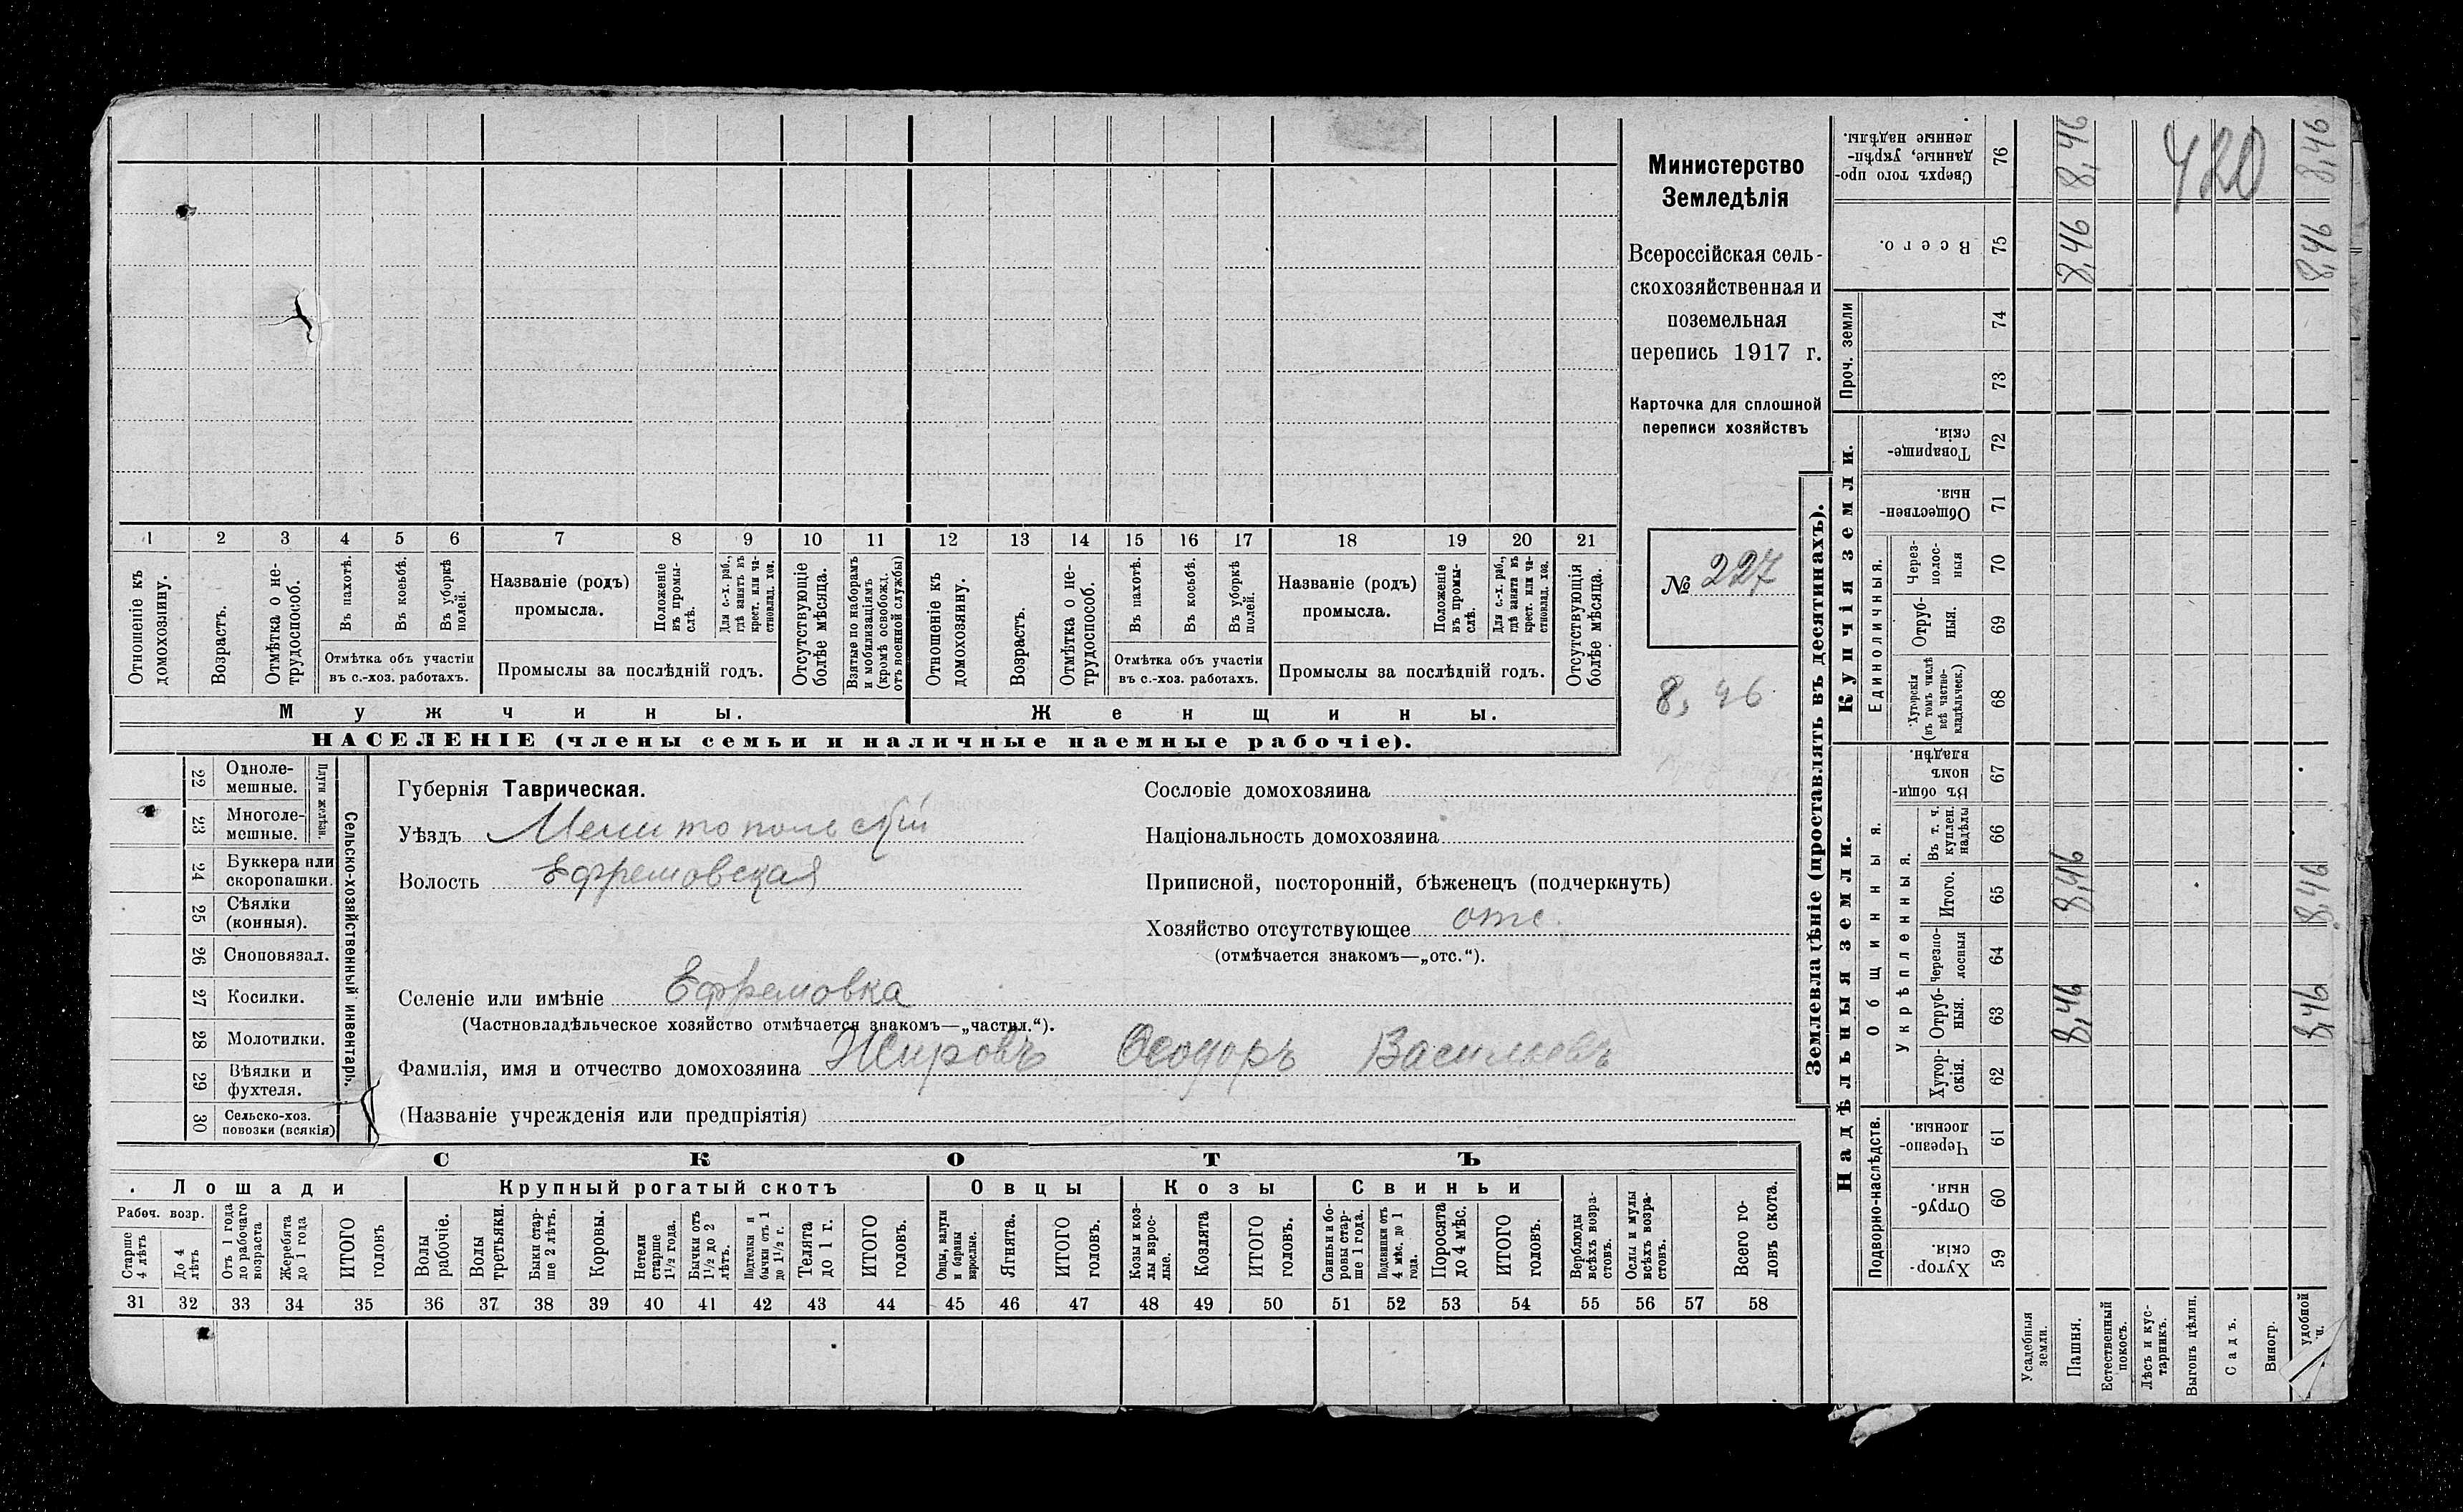 Министерство
Земледѣлія
Всероссійская сель-
скохозяйственная и
поземельная
перепись 1917 г.
Карточка для сплошной
переписи хозяйствъ
№ 227
8,46
1 2 3 4 5 6 7 8 9 10 11 12 13 14 15 16 17 18 19 20 21
Отношеніе къ домохозяину.
Возрастъ.
Отмѣтка о не-трудоспособ.
Въ пахотѣ.
Въ косьбѣ.
Въ уборкѣ полей.
Отмѣтка объ участіи
въ с.-хоз. работахъ.
Названіе (родъ)
промысла.
Положеніе въ промы-слѣ.
Для с.-х. раб., гдѣ занятъ въ крест. или ча-стновлад. хоз.
Промыслы за послѣдній годъ.
Отсутствующіе болѣе мѣсяца.
Взятые по наборамъ и мобилизаціямъ (кромѣ освобожд. отъ военной службы)
Отношеніе къ домохозяину.
Возрастъ.
Отмѣтка о не-трудоспособ.
Въ пахотѣ.
Въ косьбѣ.
Въ уборкѣ полей.
Отмѣтка объ участіи
въ с.-хоз. работахъ.
Названіе (родъ)
промысла.
Положеніе въ промы-слѣ.
Для с.-х. раб., гдѣ занята въ крест. или ча-стновлад. хоз.
Промыслы за послѣдній годъ.
Отсутствующія болѣе мѣсяца.
Мужчины.
Женщины.
НАСЕЛЕНІЕ (члены семьи и наличные наемные рабочіе).
Сельско-хозяйственный инвентарь.
Плуги желѣзн.
22 Одноле-мешные.
23 Многоле-мешные.
24 Буккера или скоропашки.
25 Сѣялки (конныя).
26 Сноповязал.
27 Косилки.
28 Молотилки.
29 Вѣялки и фухтеля.
30 Сельско-хоз. повозки (всякія)
Губернія Таврическая.
Уѣздъ Мелитопольскій
Волость Ефремовская
Селеніе или имѣніе Ефремовка
(Частновладѣльческое хозяйство отмѣчается знакомъ—„частвл.“).
Фамилія, имя и отчество домохозяина Жировъ Ѳеодоръ Васильевъ
(Названіе учрежденія или предпріятія)
Сословіе домохозяина
Національность домохозяина
Приписной, посторонній, бѣженецъ (подчеркнуть)
Хозяйство отсутствующее отс.
(отмѣчается знакомъ—„отс.“).
СКОТЪ
Лошади
Рабоч. возр.
Старше 4 лѣтъ
До 4 лѣтъ
Отъ 1 года до рабочаго возраста
Жеребята до 1 года
ИТОГО головъ
Крупный рогатый скотъ
Волы рабочіе.
Волы третьяки.
Быки стар-ше 2 лѣтъ.
Коровы.
Нетели старше 1½ года.
Бычки отъ 1½ до 2 лѣтъ.
Подтелки и бычки отъ 1 до 1½ г.
Телята до 1 г.
ИТОГО головъ.
Овцы
Овцы, валухи и бараны взрослые.
Ягнята.
ИТОГО головъ.
Козы
Козы и коз-лы взрос-лые.
Козлята
ИТОГО головъ.
Свиньи
Свиньи и бо-ровы стар-ше 1 года.
Подсвинки отъ 4 мѣс. до 1 года.
Поросята до 4 мѣс.
ИТОГО головъ.
Верблюды всѣхъ возра-стовъ.
Ослы и мулы всѣхъ возра-стовъ.
Всего го-ловъ скота.
31 32 33 34 35 36 37 38 39 40 41 42 43 44 45 46 47 48 49 50 51 52 53 54 55 56 57 58
Землевладѣніе (проставлять въ десятинахъ).
Надѣльныя земли.
Подворно-наслѣдств.
Хутор-скія. 59
Отруб-ныя. 60
Черезпо-лосныя. 61
Общинныя.
Укрѣпленныя.
Хутор-скія. 62
Отруб-ныя. 63 8,46 8,46
Черезпо-лосныя 64
Итого. 65 8,46 8,46
Въ т. ч. куплен. надѣлы 66
Въ общи-номъ владѣн. 67
Купчія земли.
Единоличныя.
Хуторскія (въ томъ числѣ всѣ частно-владѣльческ.) 68
Отруб-ныя. 69
Через-полос-ныя 70
Обществен-ныя. 71
Товарище-скія. 72
Проч. земли
73 74
Всего. 75 8,46 8,46
Сверхъ того про-данные, укрѣп-ленные надѣлы. 76 8,46 8,46
420
Усадебныя земли.
Пашня.
Естественный покосъ.
Лѣсъ и кус-тарникъ.
Выгонъ цѣлин.
Садъ.
Виногр.
удобной